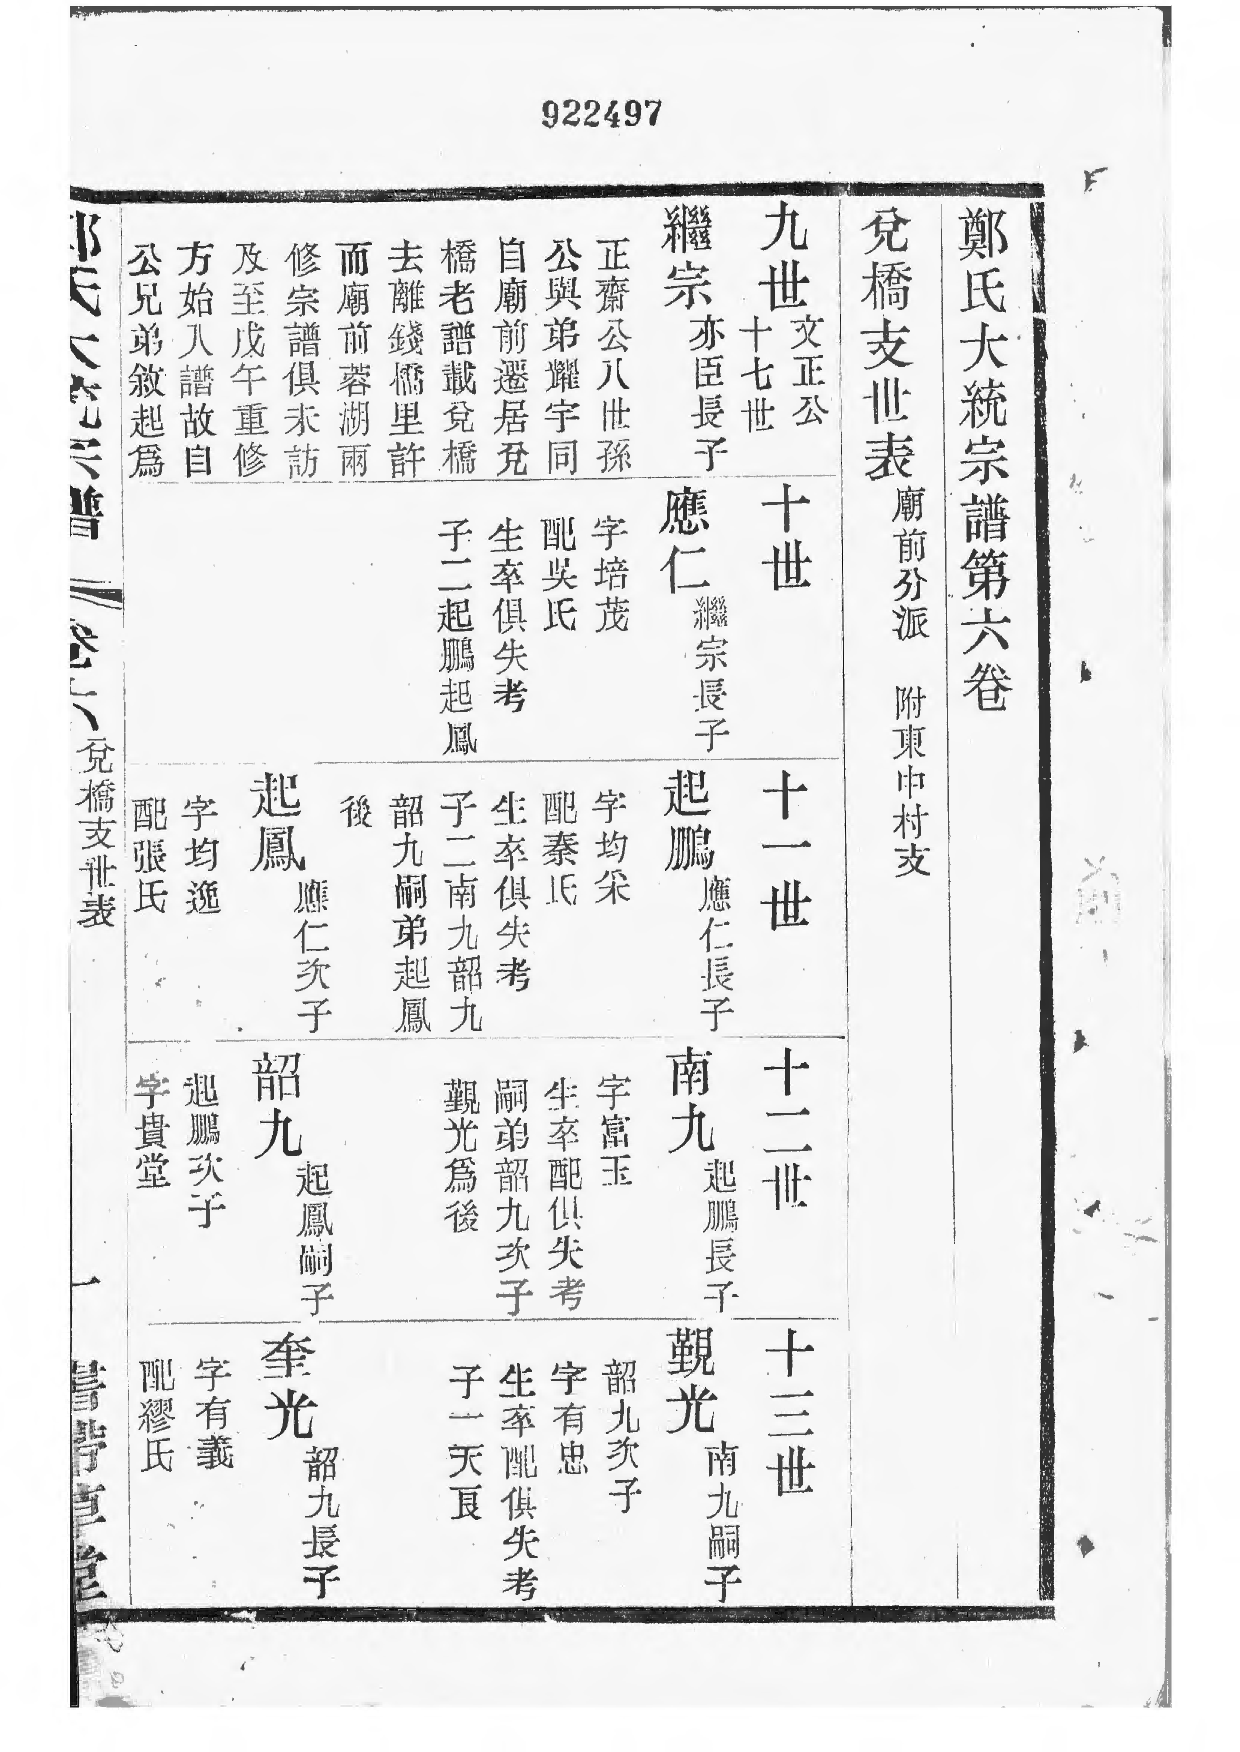 922497
鄭氏大統宗譜第六卷
兌橋支世表 廟前分派 附東中村支
九世 文正公
十七世
繼宗 亦臣長子
正齋公八世孫
公與弟耀宇同
自廟前遷居兌
橋老譜載兌橋
去離錢橋里許
而廟前蓉湖兩
修宗譜俱未訪
及至戊午重修
方始入譜故自
公兄弟敘起爲
十世
應仁 繼宗長子
字培茂
配吳氏
生卒俱失考
子二起鵬起鳳
十一世
起鵬 應仁長子
字均采
配秦氏
生卒俱失考
子二南九韶九
韶九嗣弟起鳳
後
起鳳 應仁次子
字均逸
配張氏
十二世
南九 起鵬長子
字富玉
生卒配俱失考
嗣弟韶九次子
覲光爲後
韶九 起鳳嗣子
起鵬次子
字貴堂
十三世
覲光 南九嗣子
韶九次子
字有忠
生卒配俱失考
子一天良
奎光 韶九長子
字有義
配繆氏
鄭氏大統宗譜 卷六 兌橋支世表 一 書帶草堂